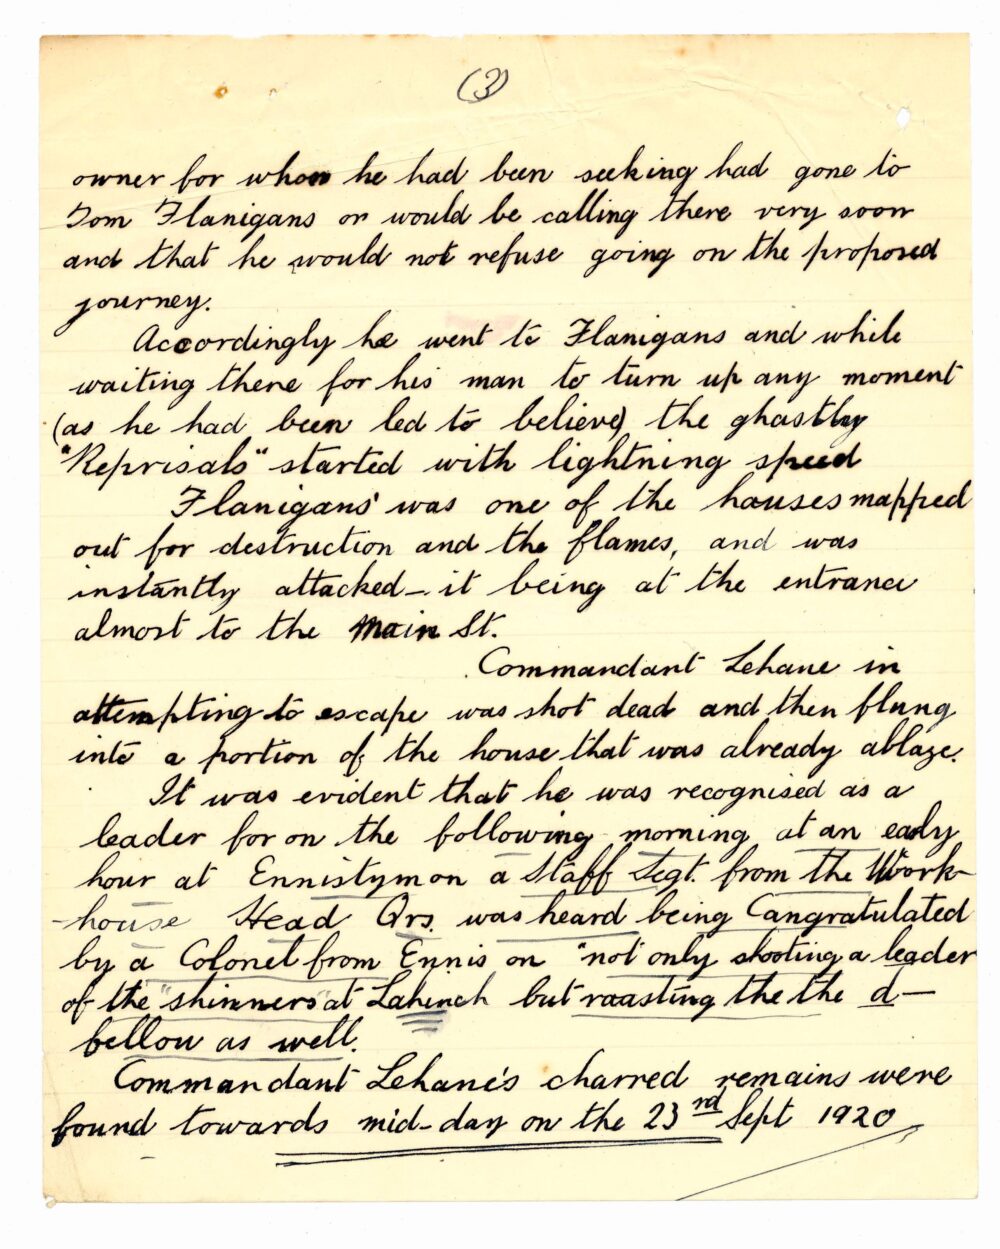 (3)
owner for whom he had been seeking had gone to
Tom Flanigans or would be calling there very soon
and that he would not refuse going on the proposed
journey.
Accordingly he went to Flanigans and while
waiting there for his man to turn up any moment
(as he had been led to believe) the ghastly
"Reprisals" started with lightning speed
Flanigans' was one of the houses mapped
out for destruction and the flames, and was
instantly attacked - it being at the entrance
almost to the Main St.
Commandant Lehane in
attempting to escape was shot dead and then flung
into a portion of the house that was already ablaze.
It was evident that he was recognised as a
leader for on the following morning at an early
hour at Ennistymon a Staff Segt. from the Work-
-house Head Qrs. was heard being Cangratulated
by a Colonel from Ennis on "not only shooting a leader
of the "shinners" at Lahinch but roasting the the d—
fellow as well.
Commandant Lehane's charred remains were
found towards mid-day on the 23rd Sept 1920